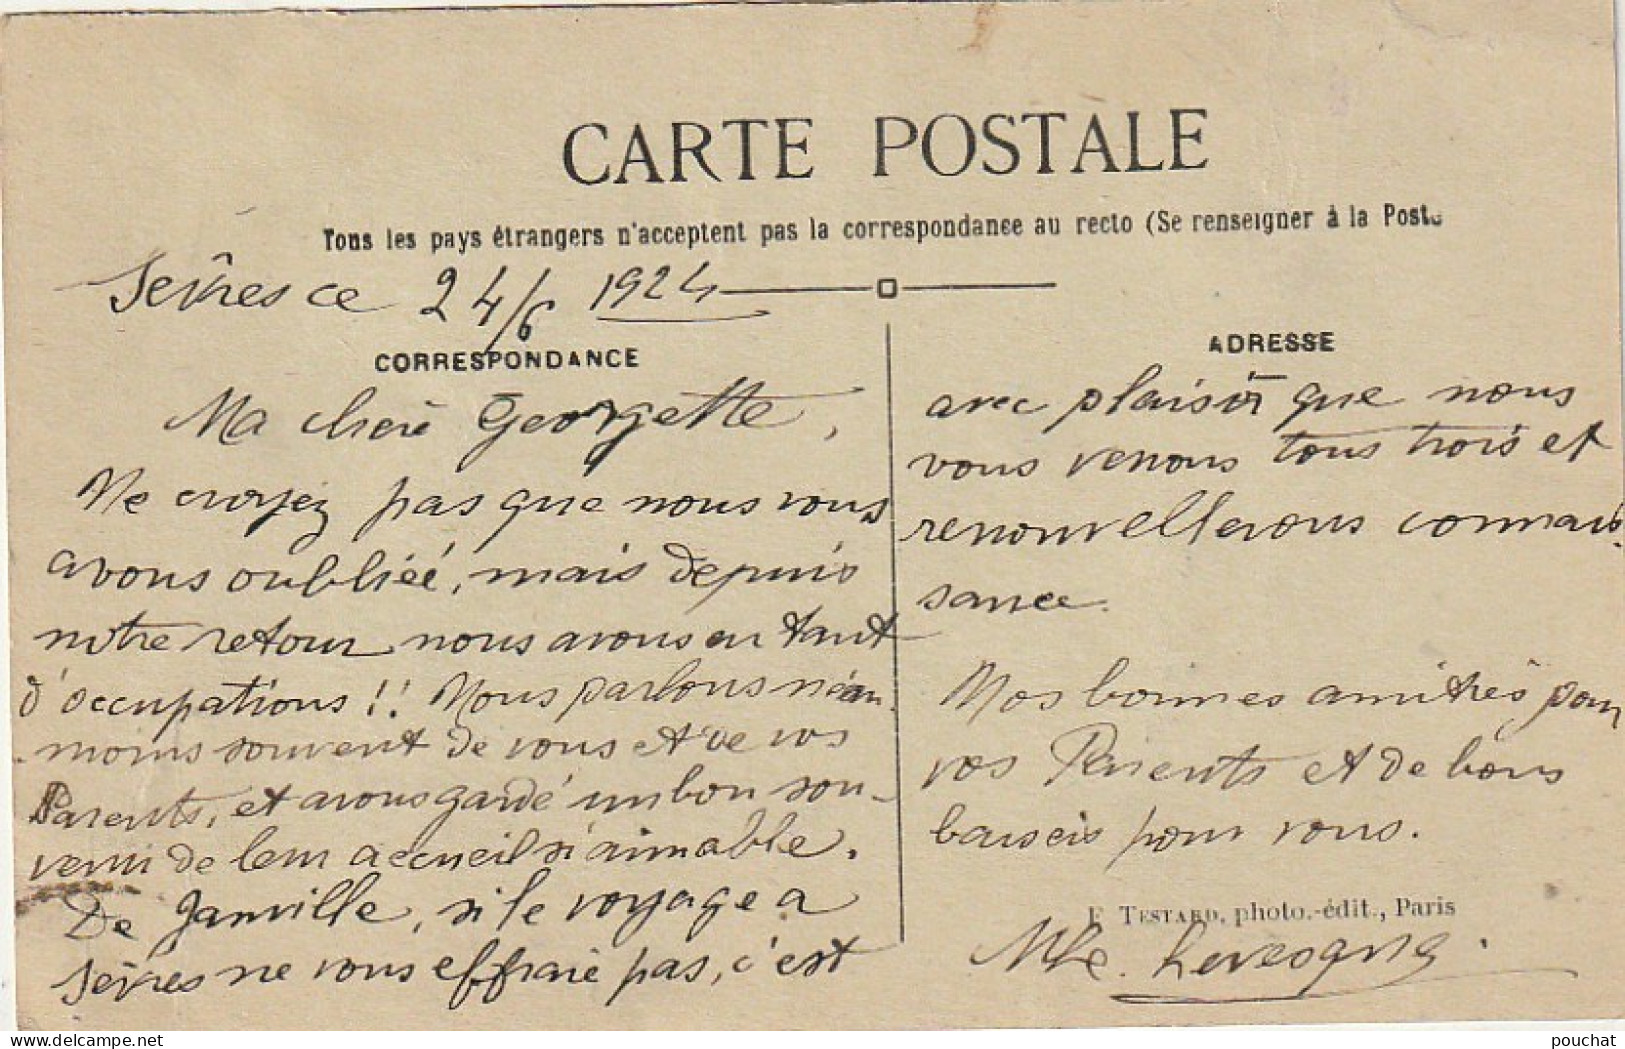 CARTE POSTALE
Tous les pays étrangers n'acceptent pas la correspondance au recto (Se renseigner à la Poste
Sèvres ce 24/6 1924
CORRESPONDANCE
Ma chère Georgette,
Ne croyez pas que nous vous
avons oubliée, mais depuis
notre retour nous avons eu tant
d'occupations!! Nous parlons néan-
moins souvent de vous et de vos
Parents, et avons gardé un bon sou-
venir de leur accueil si aimable.
De Janville, si le voyage a
Sèvres ne vous effraie pas, c'est
ADRESSE
avec plaisir que nous
vous verrons tous trois et
renouvellerons connais-
sance.
Mes bonnes amitiés pour
vos Parents et de bons
baisers pour vous.
F. TESTARD, photo.-édit., Paris
pouchat